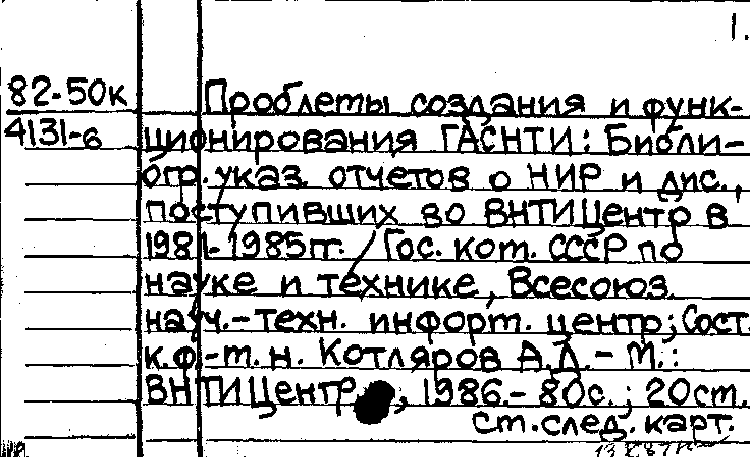 1.
82-50к Проблемы создания и функ-
4131-6 ционирования ГАСНТИ: Библи-
огр. указ. отчетов о НИР и дис.,
поступивших во ВНТИЦентр в
1981-1985гг. / Гос. ком. СССР по
науке и технике, Всесоюз.
науч.-техн. информ. центр; Сост.
к.ф.-м.н. Котляров А.Д. - М.:
ВНТИЦентр, 1986.- 80с.; 20см.
см. след. карт.